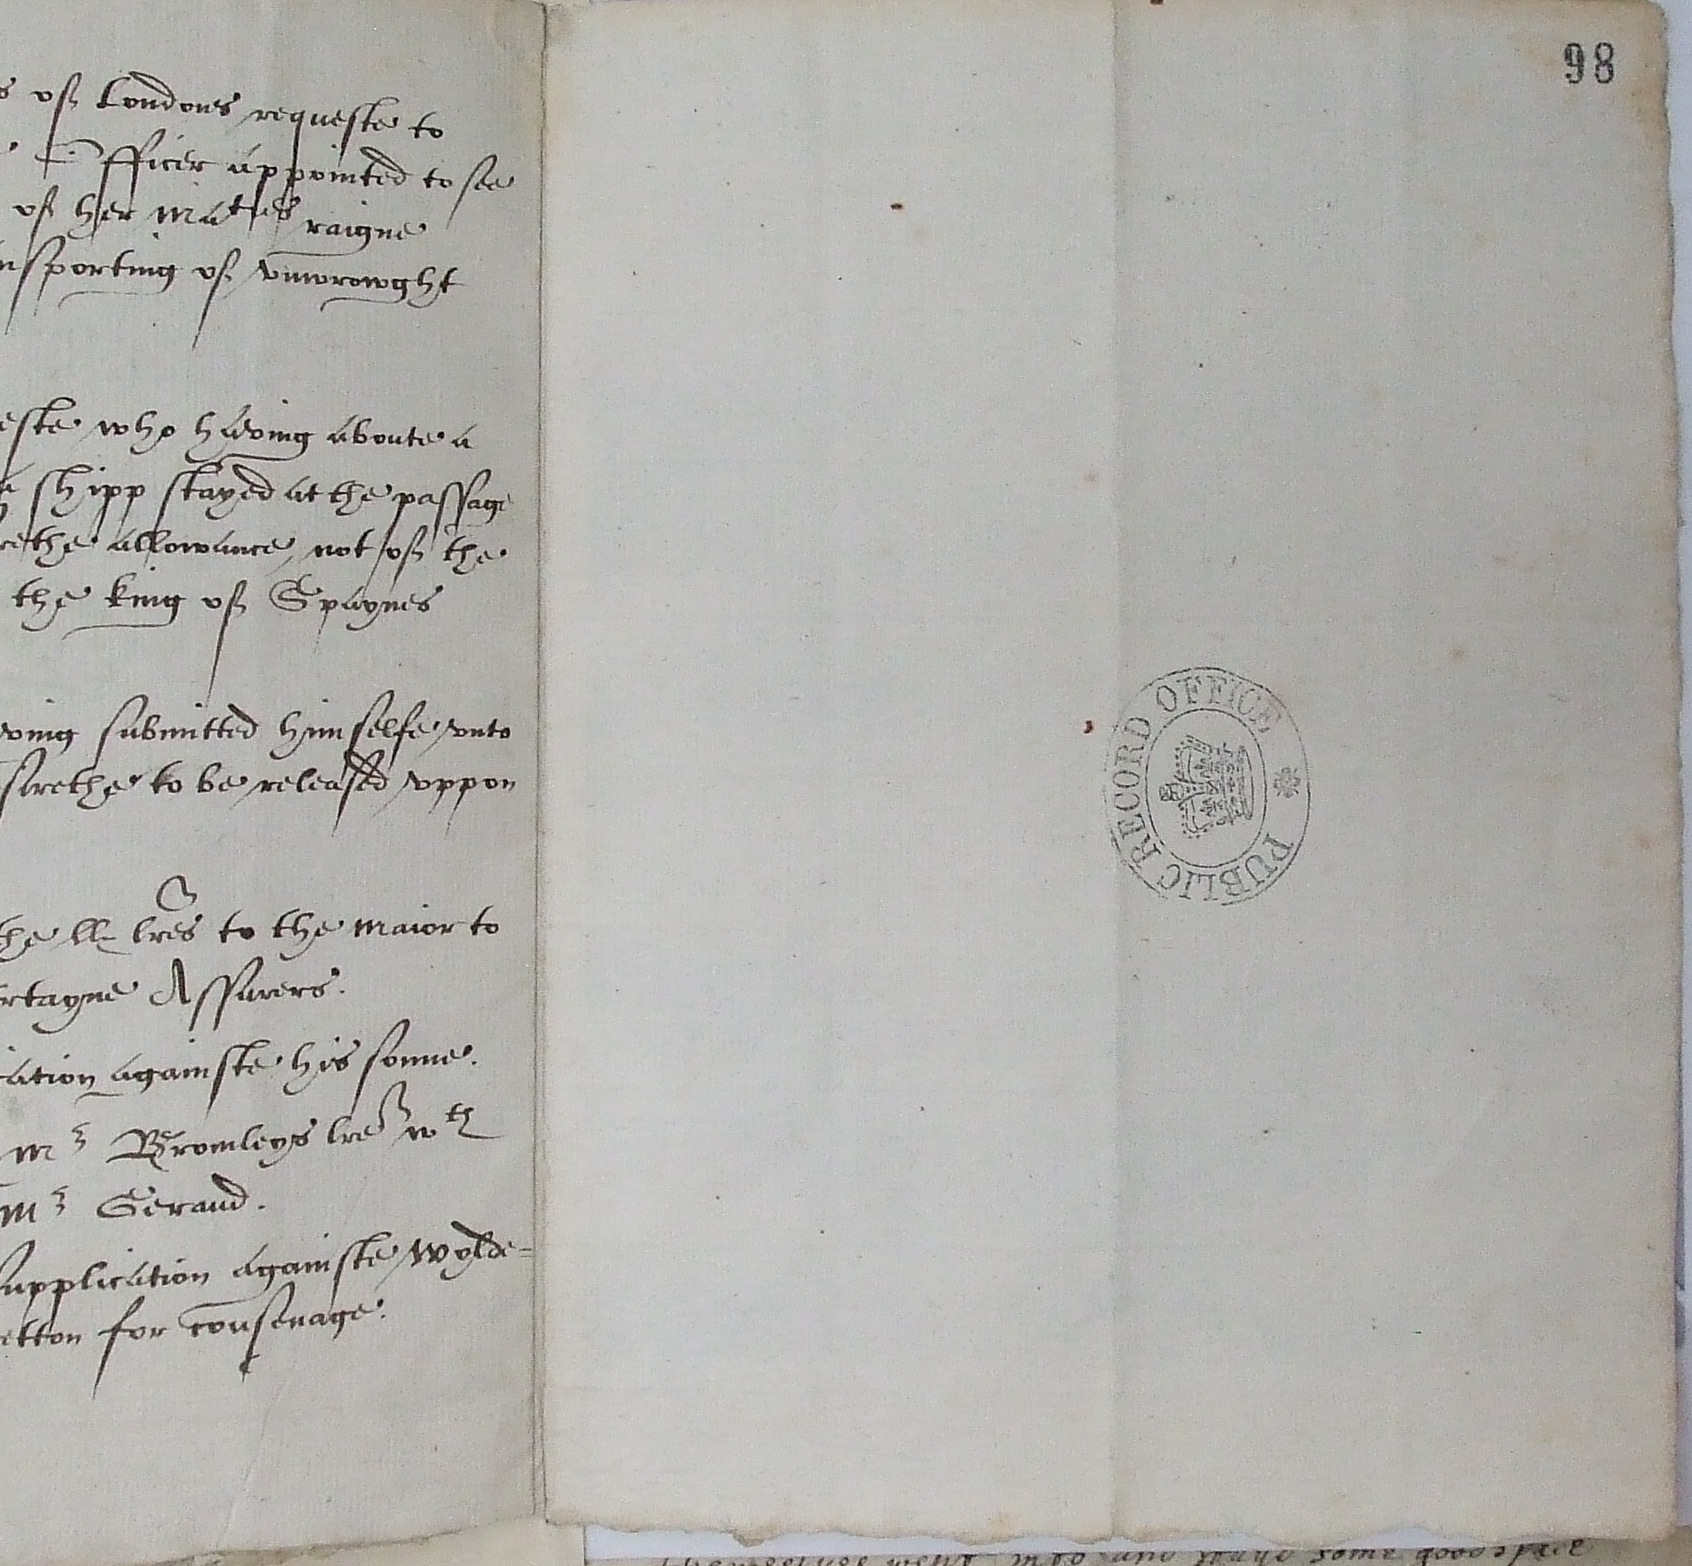 of Londons requeste to
Officer appointed to see
of her Maties raigne
nsporting of vnwrowght
este who having aboute a
shipp stayed at the passage
rethe allowance, not of the
the king of Spaynes
ving submitted himselfe vnto
sirethe to be released vppon
he ll: lres to the maior to
rtayne Assurers.
ation againste his sonne.
Mr Bromleys lre wth
Mr Gerand.
supplication againste Wylde=
etton for cousenage.
98
PUBLIC RECORD OFFICE
some good space